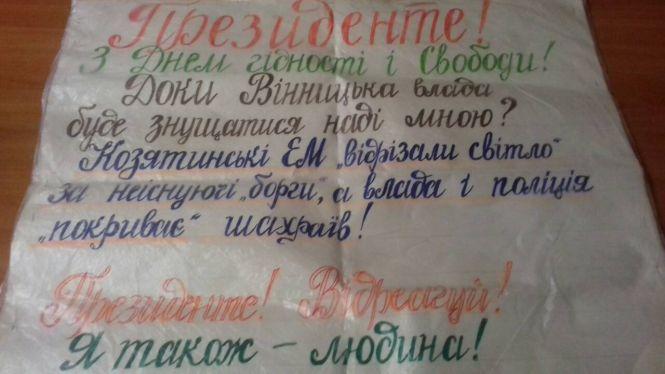 Президенте!
З Днем гідності і Свободи!
Доки Вінницька влада
буде знущатися наді мною?
Козятинські ЕМ „відрізали світло"
за неіснуючі „борги", а влада і поліція
„покриває" шахраїв!
Президенте! Відреагуй!
Я також – людина!